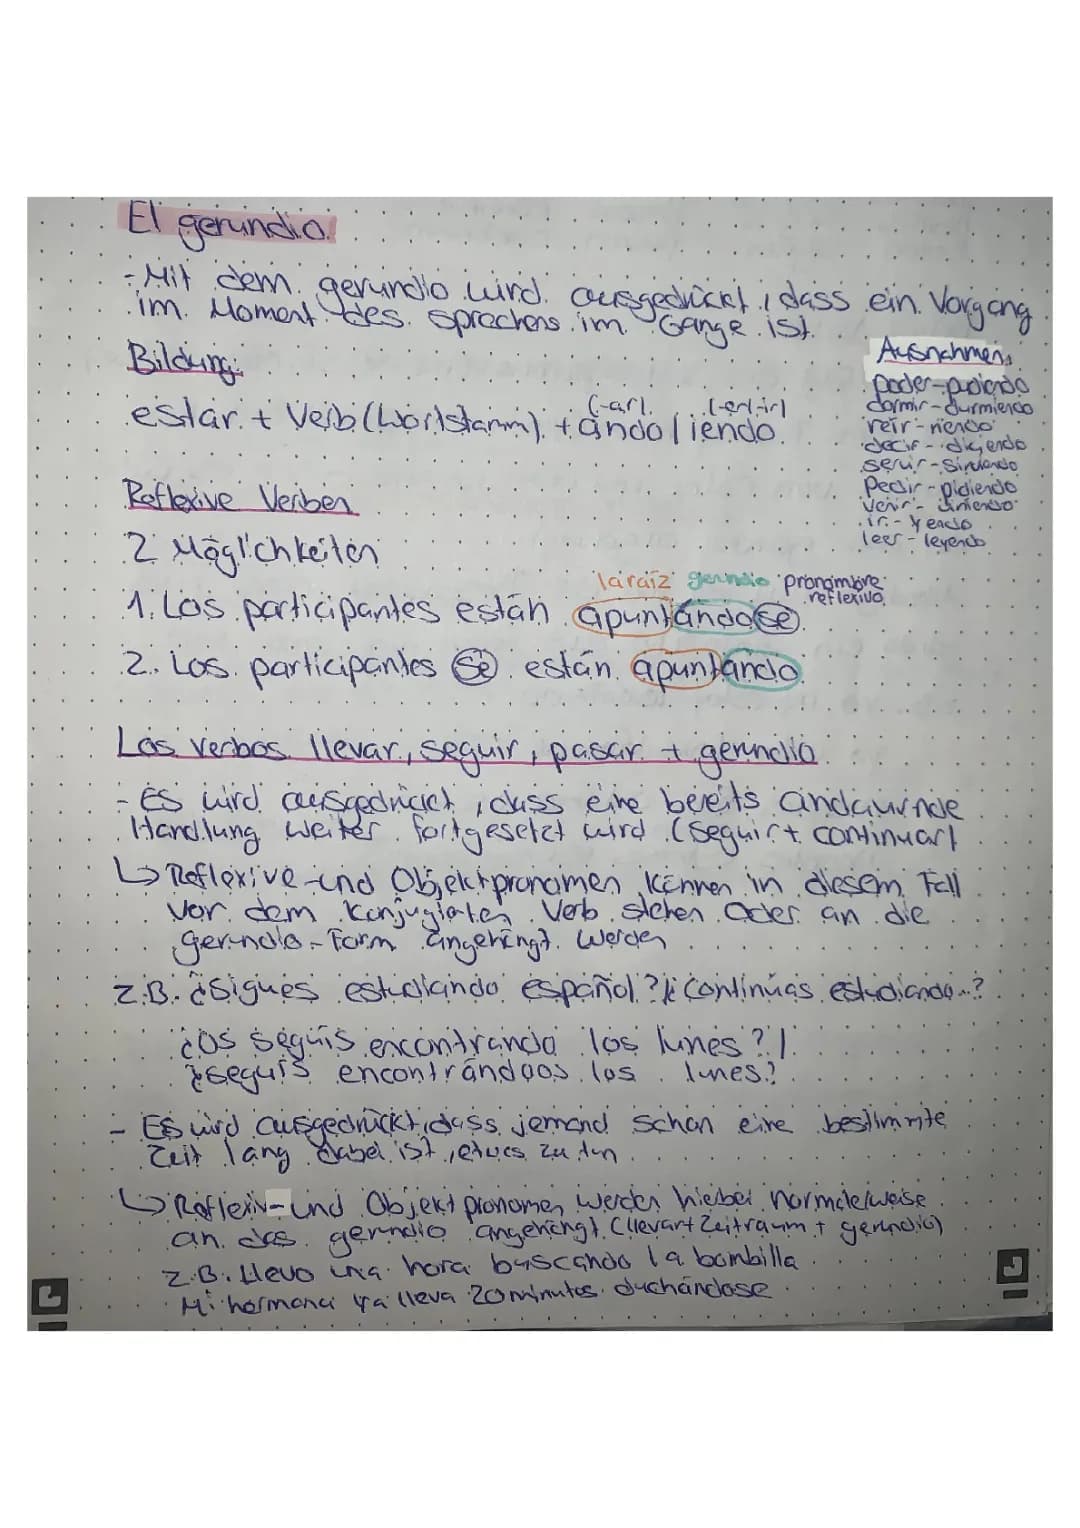 El gerundio:
- Mit dem gerundio wird ausgedrückt, dass ein Vorgang
im Moment des sprechens im Gange ist.
Bildung:
(-ar) (-er/-ir)
estar + Verb (Wortstamm) + ando / iendo
Ausnahmen:
poder - pudiendo
dormir - durmiendo
reír - riendo
decir - diciendo
servir - sirviendo
Pedir - pidiendo
venir - viniendo
ir - yendo
leer - leyendo
Reflexive Verben
2 Möglichkeiten
la raíz gerundio pronombre
reflexivo
1. Los participantes están apuntándose
2. Los participantes se están apuntando
Los verbos llevar, seguir, pasar + gerundio
- Es wird ausgedrückt, dass eine bereits andaurnde
Handlung weiter fortgesetzt wird (seguir + continuar)
↳ Reflexive- und Objektpronomen können in diesem Fall
vor dem konjugierten Verb stehen oder an die
gerundio-Form angehängt werden
z.B. ¿Sigues estudiando español? / ¿Continúas estudiando...?
¿Os seguís encontrando los lunes? /
¿seguís encontrándoos los lunes?
- Es wird ausgedrückt, dass jemand schon eine bestimmte
Zeit lang dabei ist, etwas zu tun
↳ Reflexiv- und Objektpronomen werden hiebei normalerweise
an das gerundio angehängt (llevar + Zeitraum + gerundio)
z.B. Llevo una hora buscando la bombilla
Mi hermana ya lleva 20 minutos duchándose